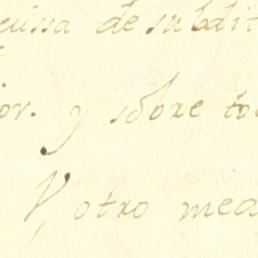 de subdit
or. y sobre to
Y otro mea